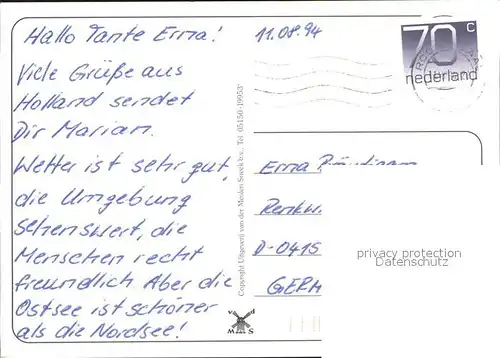 Hallo Tante Erna!
11.08.94
70 c
nederland
Viele Grüße aus
Holland sendet
Dir Marian.
Wetter ist sehr gut,
die Umgebung
sehenswert, die
Menschen recht
freundlich Aber die
Ostsee ist schöner
als die Nordsee!
Copyright Uitgeverij van der Meulen Sneek b.v., Tel. 05150-19953
Erna
Renkw
D-0415
GERM
privacy protection
Datenschutz
v d
M S